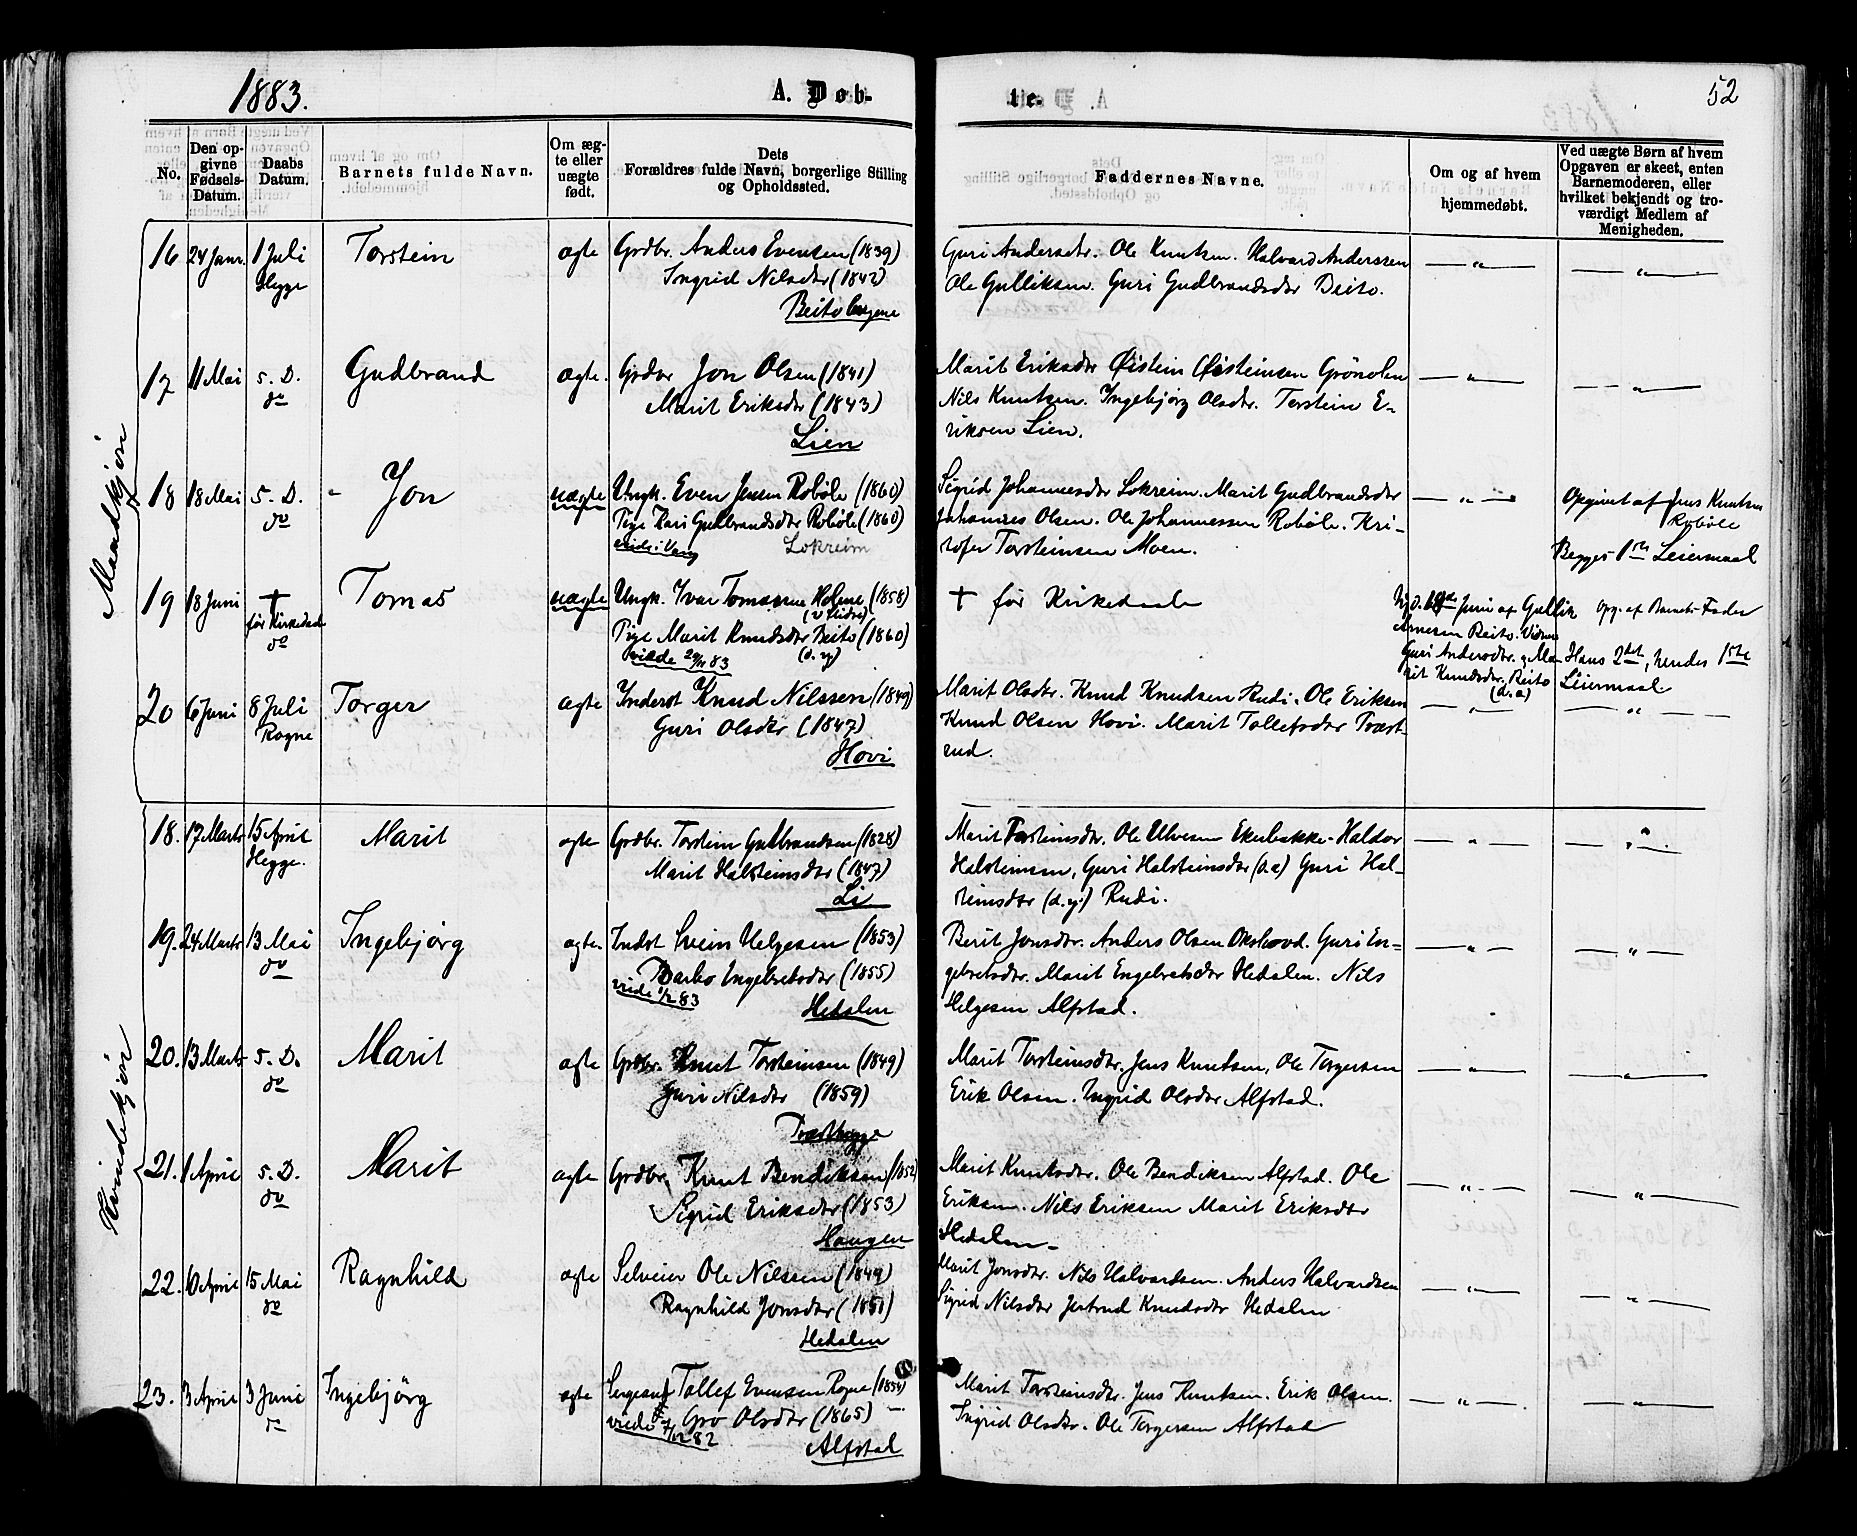 1883.
A. Døb-
te.
52
No.
Den op-
givne
Fødsels-
Datum.
Daabs
Datum.
Barnets fulde Navn.
Om æg-
te eller
uægte
født.
Dets
Forældres fulde Navn, borgerlige Stilling
og Opholdssted.
Faddernes Navne.
Om og af hvem
hjemmedøbt.
Ved uægte Børn af hvem
Opgaven er skeet, enten
Barnemoderen, eller
hvilket bekjendt og tro-
værdigt Medlem af
Menigheden.
Mandkjøn
16 24 Janr. 1 Juli Torstein ægte Grdbr. Anders Evensen (1839)
Hegge Ingrid Nilsdtr (1842)
Beito
Guri Andersdtr. Ole Knutsen. Halvard Anderssen
Ole Gulliksen. Guri Gudbrandsdtr Beito.
17 11 Mai s. D. Gudbrand ægte. Grdbr Jon Olsen (1841)
do Marit Eriksdtr (1843)
Lien
Marit Eriksdtr Øistein Øisteinsen Grönolen
Nils Knutsen. Ingebjørg Olsdtr. Torstein E-
riksen Lien.
18 18 Mai s. D. Jon uægte Ungk. Even Jensen Robøle (1860)
do Pige Kari Gudbrandsdtr Robøle (1860)
Lokreim
Sigrid Johannesdtr Lokreim. Marit Gudbrandsdtr
Johannes Olsen. Ole Johannessen Robøle. Kri-
stofer Torsteinsen Moen.
Opgivet af Jens Knutsen
Robøle
Begges 1ste Leiermaal
19 18 Juni + Tomas uægte Ungk. Ivar Tomassen Holme (1858)
før Kirkedaab (V Slidre)
do Pige Marit Knudsdtr Beito (1860)
(d. y)
+ før Kirkedaab
Juni af Gullik
Arnesen Beito. Vidner
Guri Andersdtr. & Ma-
rit Knudsdtr. Beito
(d. æ)
Opg. af Barnets Fader
Hans 2det, hendes 1ste
Leiermaal.
20 6 Juni 8 Juli Torger ægte Inderst Knud Nilssen (1849)
Rogne Guri Olsdtr (1847)
Hovi
Marit Olsdtr. Knud Knudsen Rudi. Ole Eriksen
Knud Olsen Hovi. Marit Tollefsdtr Tvært-
rud.
Kvindekjøn
18. 17 Marts 15 April Marit ægte Grdbr. Torstein Gulbrandsen (1828)
Hegge. Marit Halsteinsdtr (1847)
Li
Marit Torsteinsdtr. Ole Ulvesen Ekerbakke. Haldor
Halsteinsen, Guri Halsteinsdtr (d.æ) Guri Hal-
steinsdtr (d.y.) Rudi.
19. 24 Marts 13 Mai Ingebjørg ægte. Indst Svein Helgesen (1853)
do Barbo Ingebretsdtr (1855)
viede 1/2 83
Hedalen
Berit Jonsdtr. Anders Olsen Okshovd. Guri En-
gebretsdtr. Marit Engebretsdtr Hedalen. Nils
Helgesen Alfstad.
20. 13 Marts s. D. Marit ægte Grdbr. Knut Torsteinsen (1849)
do Guri Nilsdtr (1859)
Marit Torsteinsdtr. Jens Knutsen, Ole Torgersen
Erik Olsen. Ingrid Olsdtr Alfstad.
21. 1 April s. D. Marit ægte Grdbr. Knut Bendiksen (1852)
do Sigrid Eriksdtr (1853)
Haugen
Marit Knutsdtr. Ole Bendiksen Alfstad. Ole
Eriksen. Nils Eriksen Marit Eriksdtr
Hedalen.
22. 10 April 15 Mai Ragnhild ægte Selveier Ole Nilssen (1849)
do Ragnhild Jonsdtr (1851)
Hedalen
Marit Jonsdtr. Nils Halvardsen. Anders Halvardsen
Sigrid Nilsdtr Jertrud Knudsdtr Hedalen
23. 3 April 3 Juni Ingebjörg ægte Sergeant Tollef Evensen Rogne (1854)
do viede 7/12 82 Gro Olsdtr (1865)
Alfstad
Marit Torsteinsdtr. Jens Knutsen. Erik Olsen.
Ingrid Olsdtr. Ole Torgersen Alfstad